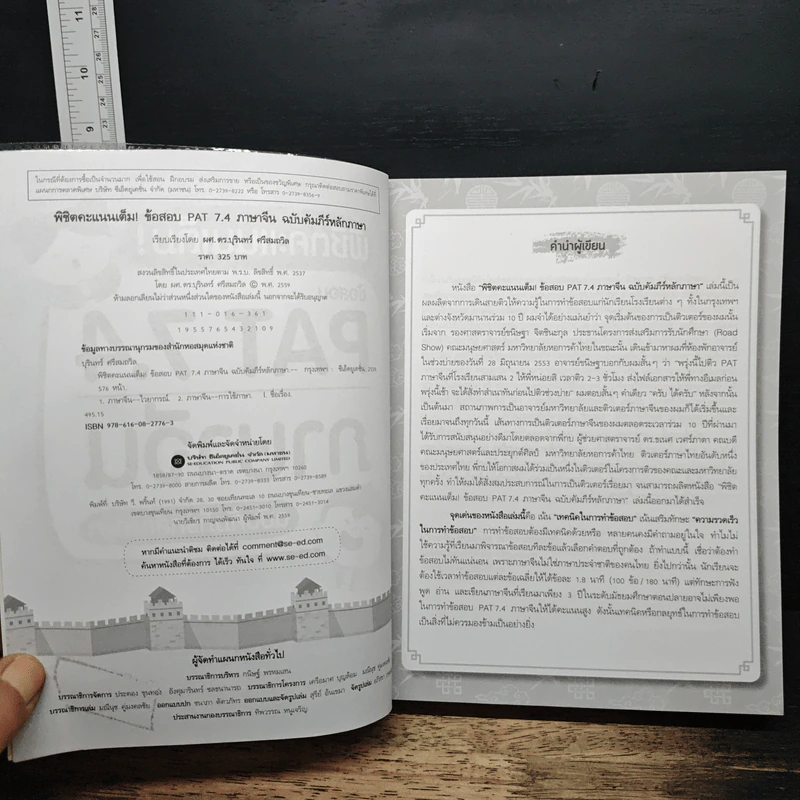 11
10
9
28
27
26
25
24
23
ในกรณีที่ต้องการซื้อเป็นจำนวนมาก เพื่อใช้สอน ฝึกอบรม ส่งเสริมการขาย หรือเป็นของขวัญพิเศษ กรุณาติดต่อสอบถามราคาพิเศษได้ที่
แผนกการตลาดพิเศษ บริษัท ซีเอ็ดยูเคชั่น จำกัด (มหาชน) โทร. 0-2739-8222 หรือ โทรสาร 0-2739-8356-9
พิชิตคะแนนเต็ม! ข้อสอบ PAT 7.4 ภาษาจีน ฉบับคัมภีร์หลักภาษา
เรียบเรียงโดย ผศ.ดร.บุรินทร์ ศรีสมถวิล
ราคา 325 บาท
สงวนลิขสิทธิ์ในประเทศไทยตาม พ.ร.บ. ลิขสิทธิ์ พ.ศ. 2537
โดย ผศ.ดร.บุรินทร์ ศรีสมถวิล © พ.ศ. 2559
ห้ามลอกเลียนไม่ว่าส่วนหนึ่งส่วนใดของหนังสือเล่มนี้ นอกจากจะได้รับอนุญาต
111-016-361
1955765432109
ข้อมูลทางบรรณานุกรมของสำนักหอสมุดแห่งชาติ
บุรินทร์ ศรีสมถวิล
พิชิตคะแนนเต็ม! ข้อสอบ PAT 7.4 ภาษาจีน ฉบับคัมภีร์หลักภาษา.-- กรุงเทพฯ : ซีเอ็ดยูเคชั่น, 2559
576 หน้า
1. ภาษาจีน--ไวยากรณ์. 2. ภาษาจีน--การใช้ภาษา. I. ชื่อเรื่อง.
495.15
ISBN 978-616-08-2776-3
จัดพิมพ์และจัดจำหน่ายโดย
บริษัท ซีเอ็ดยูเคชั่น จำกัด (มหาชน)
SE-EDUCATION PUBLIC COMPANY LIMITED
1858/87-90 ถนนบางนา-ตราด เขตบางนา กรุงเทพฯ 10260
โทร. 0-2739-8000
พิมพ์ที่ บริษัท วี. พริ้นท์ (1991) จำกัด
เขตบางขุนเทียน กรุงเทพฯ 10150 โทร. 0-2451-3010 โทรสาร 0-2451-3014
นายวิเชียร กาญจนพัฒนา ผู้พิมพ์ พ.ศ. 2559
หากมีคำแนะนำติชม ติดต่อได้ที่ comment@se-ed.com
ค้นหาหนังสือที่ต้องการ ได้เร็ว ทันใจ ที่ www.se-ed.com
ผู้จัดทำแผนกหนังสือทั่วไป
บรรณาธิการบริหาร กนิษฐ์ พรหมเสน
บรรณาธิการจัดการ
บรรณาธิการโครงการ
บรรณาธิการเล่ม
ออกแบบปก
ออกแบบและจัดรูปเล่ม
ประสานงานกองบรรณาธิการ ทิพวรรณ หนูเจริญ
คำนำผู้เขียน
หนังสือ "พิชิตคะแนนเต็ม! ข้อสอบ PAT 7.4 ภาษาจีน ฉบับคัมภีร์หลักภาษา" เล่มนี้เป็น
ผลผลิตจากการเดินสายติวให้ความรู้ในการทำข้อสอบแก่นักเรียนโรงเรียนต่าง ๆ ทั้งในกรุงเทพฯ
และต่างจังหวัดมานานร่วม 10 ปี ผมจำได้อย่างแม่นยำว่า จุดเริ่มต้นของการเป็นติวเตอร์ของผมนั้น
เริ่มจาก รองศาสตราจารย์ขนิษฐา จิตชินะกุล ประธานโครงการส่งเสริมการรับนักศึกษา (Road
Show) คณะมนุษยศาสตร์ มหาวิทยาลัยหอการค้าไทยในขณะนั้น เดินเข้ามาหาผมที่ห้องพักอาจารย์
ในช่วงบ่ายของวันที่ 28 มิถุนายน 2553 อาจารย์ขนิษฐาบอกกับผมสั้นๆ ว่า "พรุ่งนี้ไปติว PAT
ภาษาจีนที่โรงเรียนสามเสน 2 ให้พี่หน่อยสิ เวลาติว 2-3 ชั่วโมง ส่งไฟล์เอกสารให้พี่ทางอีเมลก่อน
พรุ่งนี้เช้า จะได้สั่งทำสำเนาทันก่อนไปติวช่วงบ่าย" ผมตอบสั้นๆ คำเดียว "ครับ ได้ครับ" หลังจากนั้น
เป็นต้นมา สถานภาพการเป็นอาจารย์มหาวิทยาลัยและติวเตอร์ภาษาจีนของผมก็ได้เริ่มขึ้นและ
เรื่อยมาจนถึงทุกวันนี้ เส้นทางการเป็นติวเตอร์ภาษาจีนของผมตลอดระยะเวลาร่วม 10 ปีที่ผ่านมา
ได้รับการสนับสนุนอย่างดีมาโดยตลอดจากพี่กบ ผู้ช่วยศาสตราจารย์ ดร.ธเนศ เวศร์ภาดา คณบดี
คณะมนุษยศาสตร์และประยุกต์ศิลป์ มหาวิทยาลัยหอการค้าไทย ติวเตอร์ภาษาไทยอันดับหนึ่ง
ของประเทศไทย พี่กบให้โอกาสผมได้ร่วมเป็นหนึ่งในติวเตอร์ในโครงการติวของคณะและมหาวิทยาลัย
ทุกครั้ง ทำให้ผมได้สั่งสมประสบการณ์ในการเป็นติวเตอร์เรื่อยมา จนสามารถผลิตหนังสือ "พิชิต
คะแนนเต็ม! ข้อสอบ PAT 7.4 ภาษาจีน ฉบับคัมภีร์หลักภาษา" เล่มนี้ออกมาได้สำเร็จ
จุดเด่นของหนังสือเล่มนี้คือ เน้น "เทคนิคในการทำข้อสอบ" เน้นเสริมทักษะ "ความรวดเร็ว
ในการทำข้อสอบ" การทำข้อสอบต้องมีเทคนิคด้วยหรือ หลายคนคงมีคำถามอยู่ในใจ ทำไมไม่
ใช้ความรู้ที่เรียนมาพิจารณาข้อสอบทีละข้อแล้วเลือกคำตอบที่ถูกต้อง ถ้าทำแบบนี้ เชื่อว่าต้องทำ
ข้อสอบไม่ทันแน่นอน เพราะภาษาจีนไม่ใช่ภาษาประจำชาติของคนไทย ยิ่งไปกว่านั้น นักเรียนจะ
ต้องใช้เวลาทำข้อสอบแต่ละข้อเฉลี่ยให้ได้ข้อละ 1.8 นาที (100 ข้อ / 180 นาที) แต่ทักษะการฟัง
พูด อ่าน และเขียนภาษาจีนที่เรียนมาเพียง 3 ปีในระดับมัธยมศึกษาตอนปลายอาจไม่เพียงพอ
ในการทำข้อสอบ PAT 7.4 ภาษาจีนให้ได้คะแนนสูง ดังนั้นเทคนิคหรือกลยุทธ์ในการทำข้อสอบ
เป็นสิ่งที่ไม่ควรมองข้ามเป็นอย่างยิ่ง